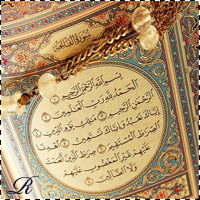 سُورَةُ الْفَاتِحَةِ
بِسْمِ اللَّهِ الرَّحْمَٰنِ الرَّحِيمِ
الْحَمْدُ لِلَّهِ رَبِّ الْعَالَمِينَ
الرَّحْمَٰنِ الرَّحِيمِ مَالِكِ يَوْمِ الدِّينِ
إِيَّاكَ نَعْبُدُ وَإِيَّاكَ نَسْتَعِينُ اهْدِنَا
الصِّرَاطَ الْمُسْتَقِيمَ صِرَاطَ الَّذِينَ أَنْعَمْتَ
عَلَيْهِمْ غَيْرِ الْمَغْضُوبِ عَلَيْهِمْ
وَلَا الضَّالِّينَ
R